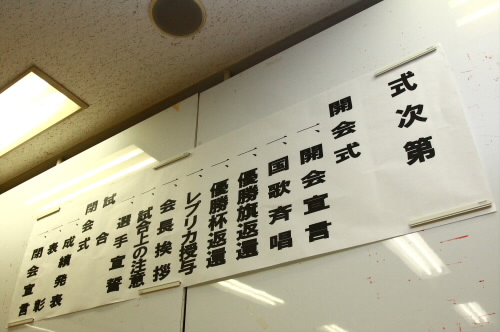 式次第
開会式
一、開会宣言
一、国歌斉唱
一、優勝旗返還
一、優勝杯返還
一、レプリカ授与
一、会長挨拶
一、試合上の注意
一、選手宣誓
試合
閉会式
一、成績発表
一、表彰
一、閉会宣言